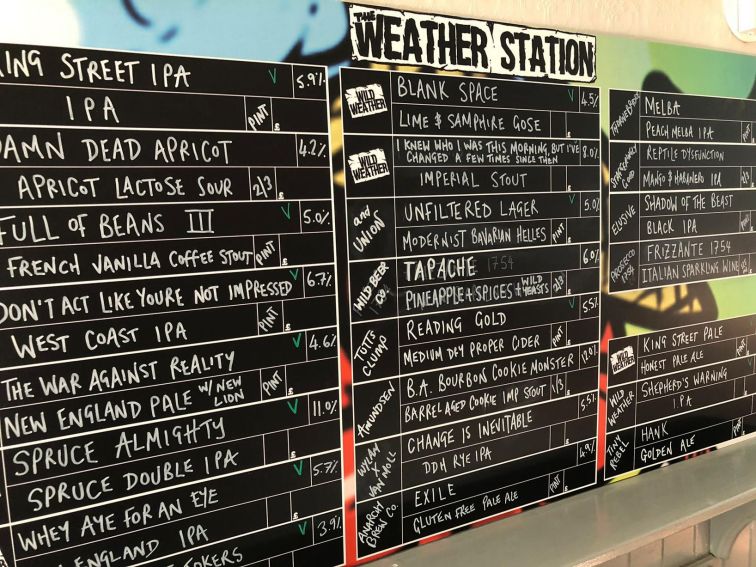 KING STREET IPA ✓ 5.9%
IPA PINT £
DAMN DEAD APRICOT 4.2%
APRICOT LACTOSE SOUR 2/3 £
FULL OF BEANS III ✓ 5.0%
FRENCH VANILLA COFFEE STOUT PINT £
DON'T ACT LIKE YOU'RE NOT IMPRESSED ✓ 6.7%
WEST COAST IPA PINT £
THE WAR AGAINST REALITY ✓ 4.6%
NEW ENGLAND PALE W/ NEW LION PINT £
SPRUCE ALMIGHTY ✓ 11.0%
SPRUCE DOUBLE IPA £
WHEY AYE FOR AN EYE ✓ 5.7%
ENGLAND IPA £
✓ 3.9%
THE WEATHER STATION
WILD WEATHER
BLANK SPACE ✓ 4.5%
LIME & SAMPHIRE GOSE
WILD WEATHER
I KNEW WHO I WAS THIS MORNING, BUT I'VE
CHANGED A FEW TIMES SINCE THEN 8.0%
IMPERIAL STOUT
and UNION
UNFILTERED LAGER ✓ 5.0%
MODERNIST BAVARIAN HELLES PINT
WILD BEER CO
TAPACHE 1754 6.0%
PINEAPPLE + SPICES + WILD YEASTS 2/3
TUTTS CLUMP
READING GOLD 5.5%
MEDIUM DRY PROPER CIDER PINT
AMUNDSEN
B.A. BOURBON COOKIE MONSTER 12.0%
BARREL AGED COOKIE IMP STOUT 1/3
WYLAM X VAN MOLL
CHANGE IS INEVITABLE 5.5%
DDH RYE IPA
ANARCHY BREW CO.
EXILE 4.9%
GLUTEN FREE PALE ALE PINT
MELBA
PEACH MELBA IPA
REPTILE DYSFUNCTION
MANGO & HABANERO IPA
ELUSIVE
SHADOW OF THE BEAST
BLACK IPA
PROSECCO 1754
FRIZZANTE 1754
ITALIAN SPARKLING WINE
WILD WEATHER
KING STREET PALE
HONEST PALE ALE
WILD WEATHER
SHEPHERD'S WARNING
IPA
TINY REBEL
HANK
GOLDEN ALE